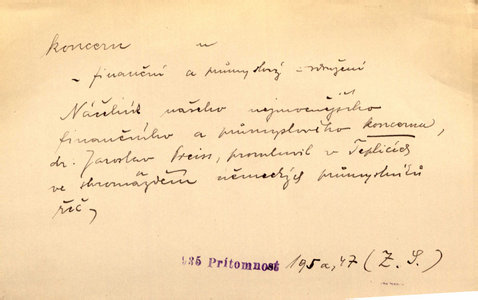 koncern
- finanční a průmyslový - sdružení
Náčelník našeho nejmocnějšího
finančního a průmyslového koncernu,
dr. Jaroslav Preiss, promluvil v Teplicích
ve shromáždění německých průmyslníků
řeč,
935 Prítomnost 195a,47 (Z. S.)